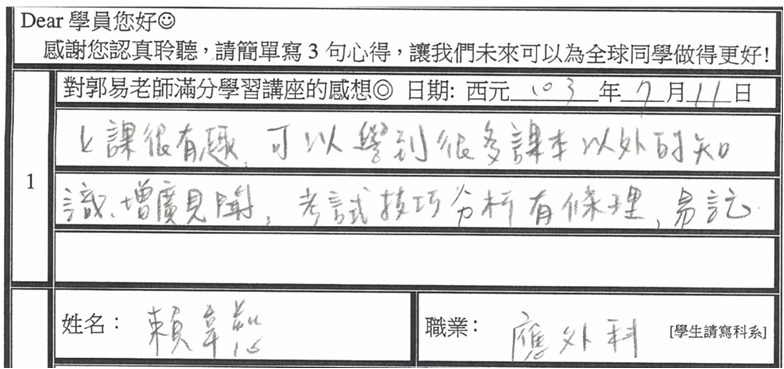 Dear 學員您好☺
感謝您認真聆聽，請簡單寫 3 句心得，讓我們未來可以為全球同學做得更好!
1
對郭易老師滿分學習講座的感想◎ 日期: 西元 103 年 7 月 11 日
上課很有趣, 可以學到很多課本以外的知
識、增廣見聞, 考試技巧分析有條理, 易記.
姓名： 賴韋
職業： 應外科 [學生請寫科系]